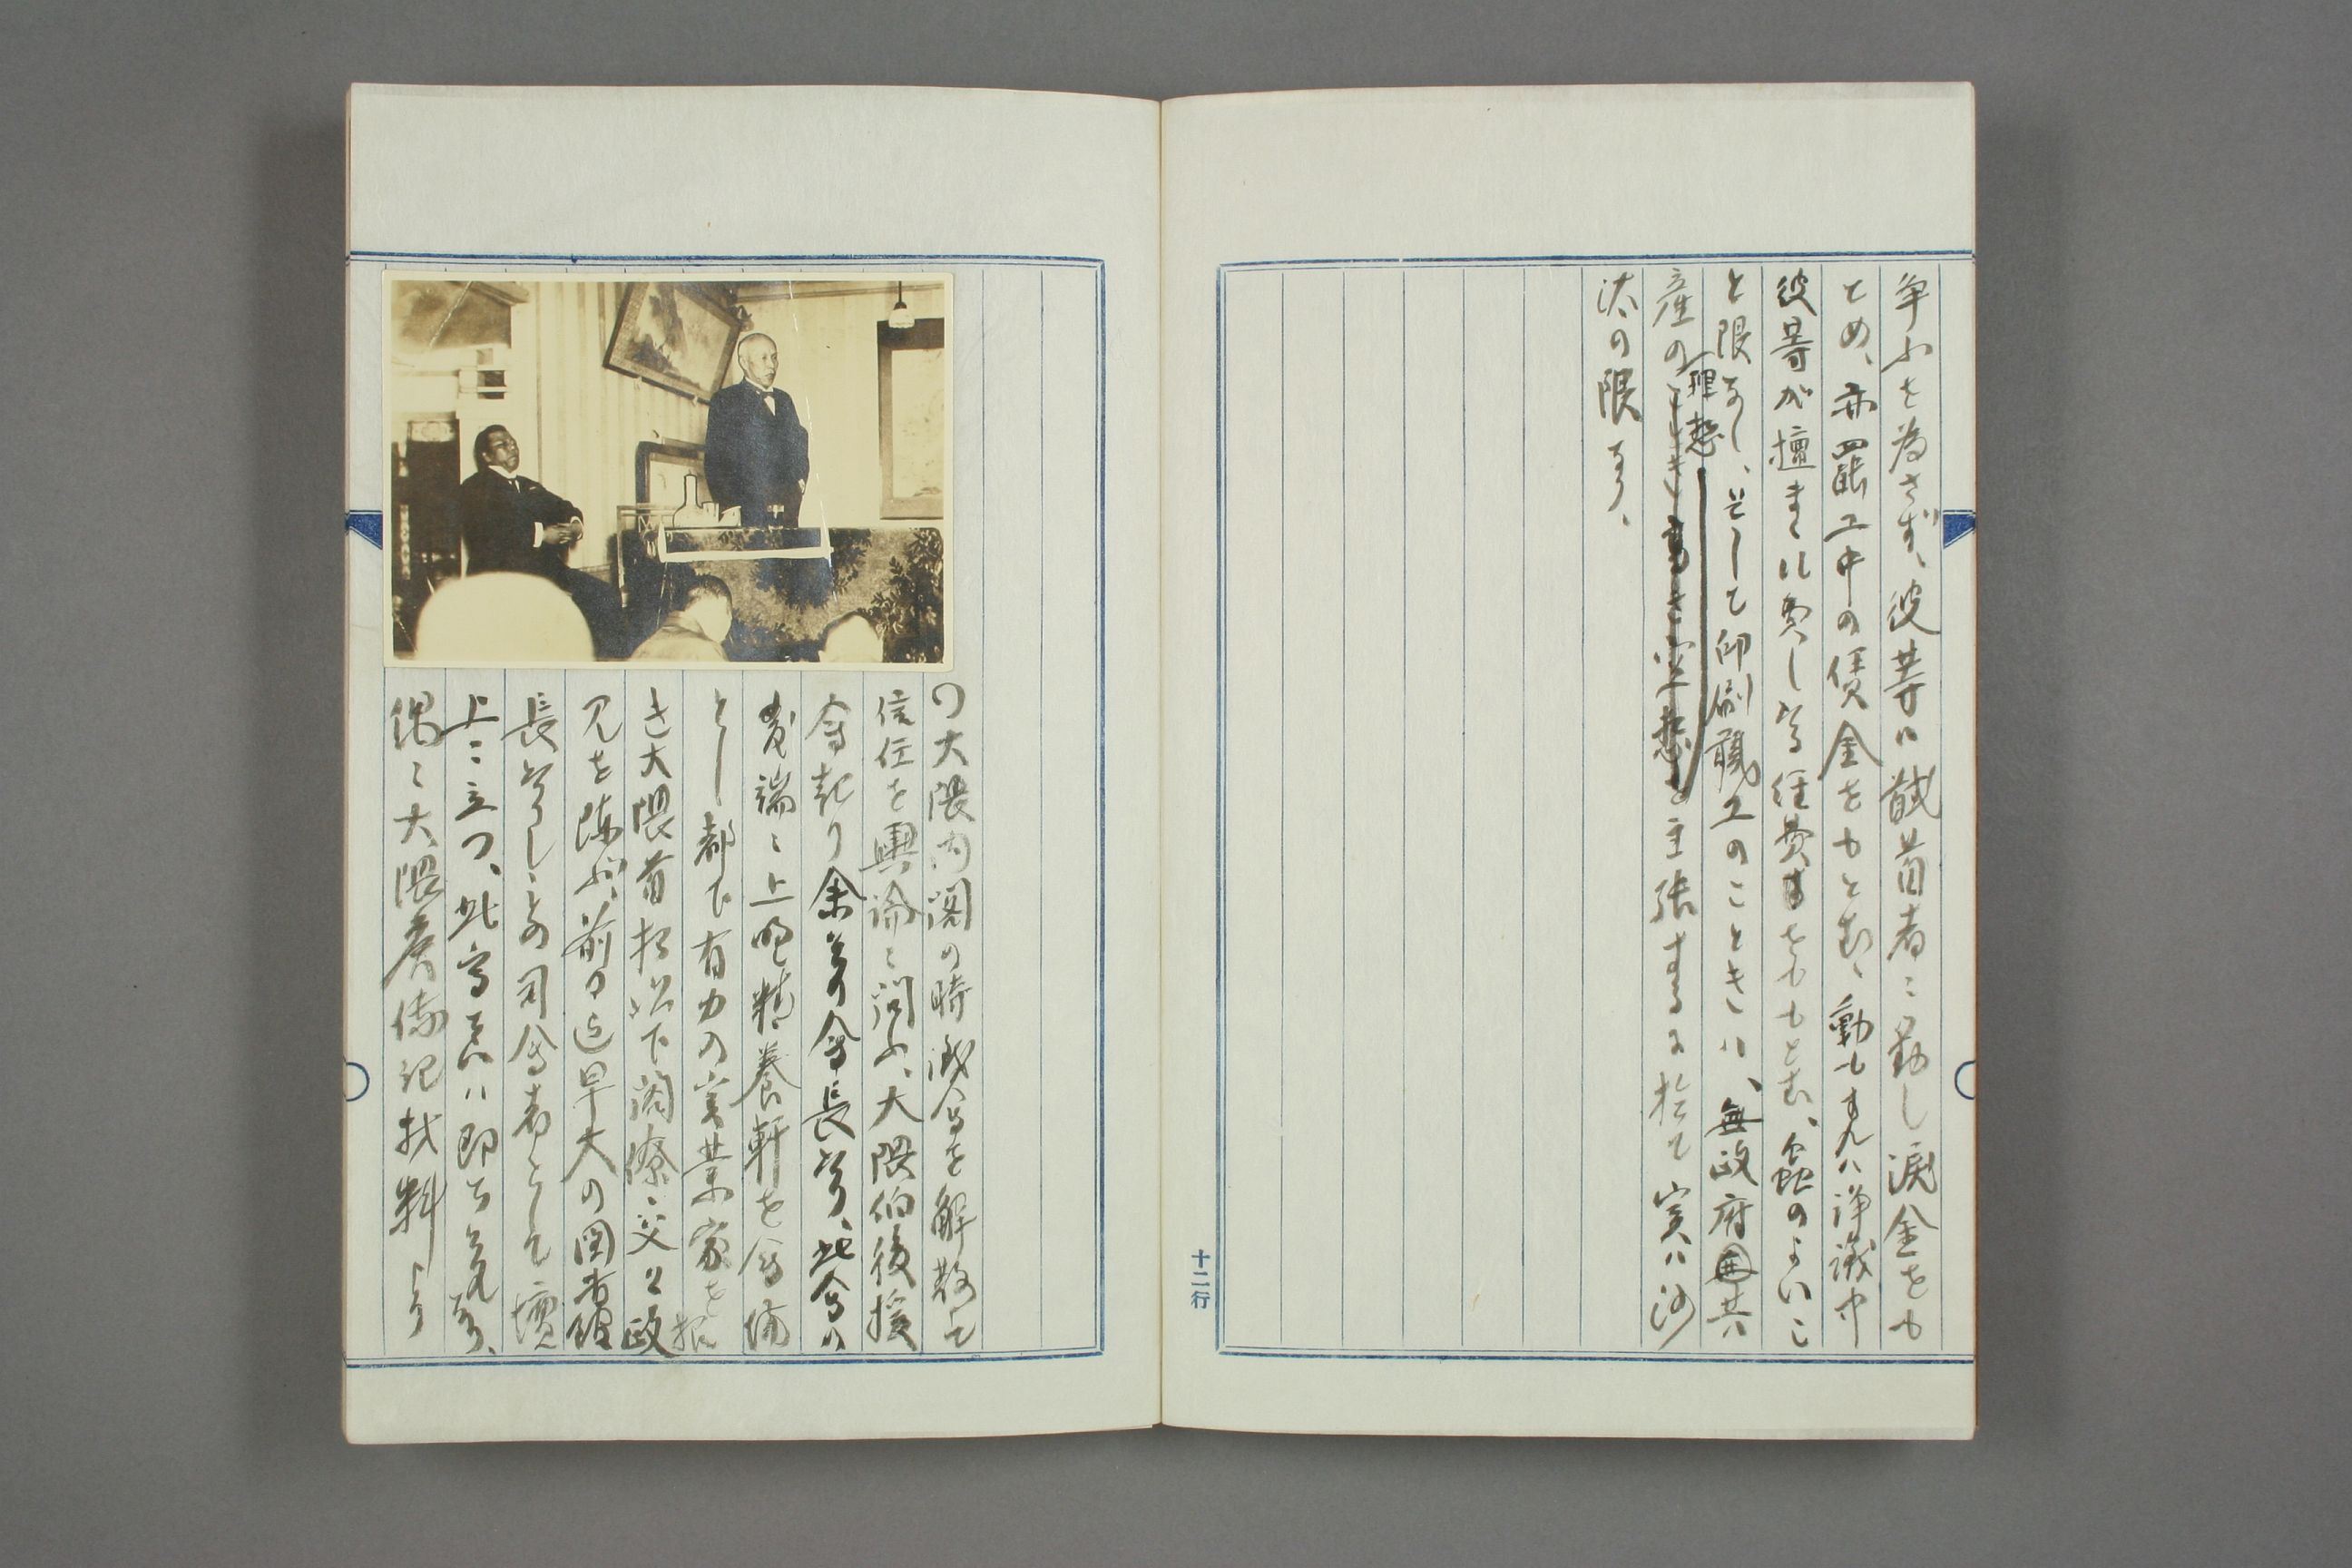 争ふを為さず、彼等は馘首者に対し涙金をも
とめ、亦罷工中の賃金をもとむ、動もすれハ諍議中
彼等が擅まゝに費し為経費をももとむ、虫のよいこ
と限なし、そして印刷職工のことき八、無政府共
産の理想を主張するに於て実ハ沙
汰の限なり、
十二行
の大隈内閣の時議会を解散して
信任を輿論に問ふ、大隈伯後援
会起り余其会長なり、此会の
発端に上野精養軒を会場
とし都下有力の実業家を招
き大隈首相以下閣僚交々政
見を陳ぶ、前の日早大の図書館
長なりし予司会者として壇
上に立つ、此写真ハ即ち是れなり、
偶に大隈侯伝記材料より